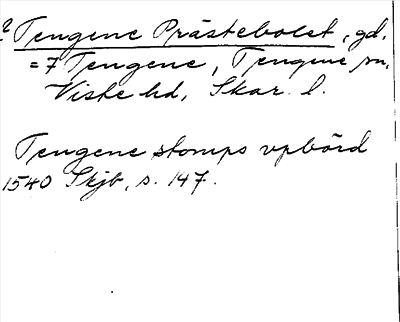 ? Tengene Prästebolet, gd.
= 7 Tengene, Tengene sn,
Viste hd, Skar. l.
Tengene stomps vpbörd
1540 Skjb, s. 147.